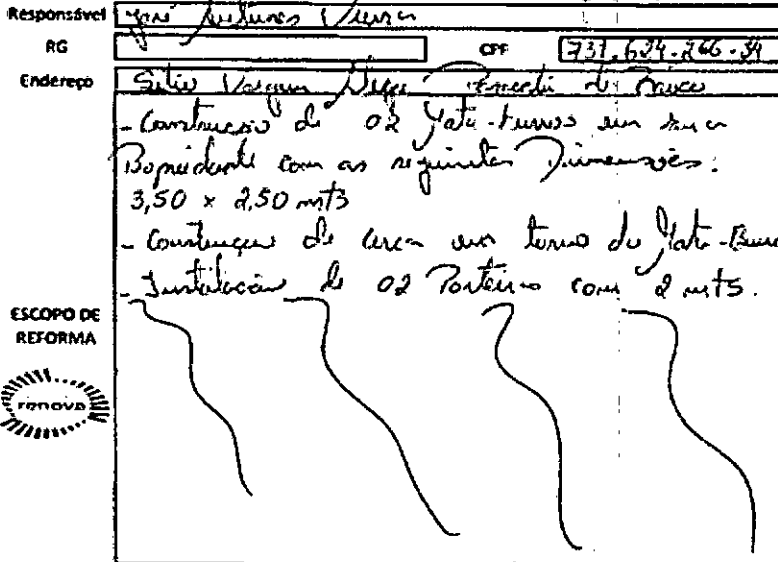 Responsável José Antunes Vieira
RG CPF 737.624.266-34
Endereço Sitio Vargem
- Construção de 02 Mata-burros em sua
com as seguintes Dimensões:
3,50 x 2,50 mts
- Construção de cerca em torno do Mata-Burro
- Instalação de 02 Porteiras com 2 mts.
ESCOPO DE
REFORMA
renova